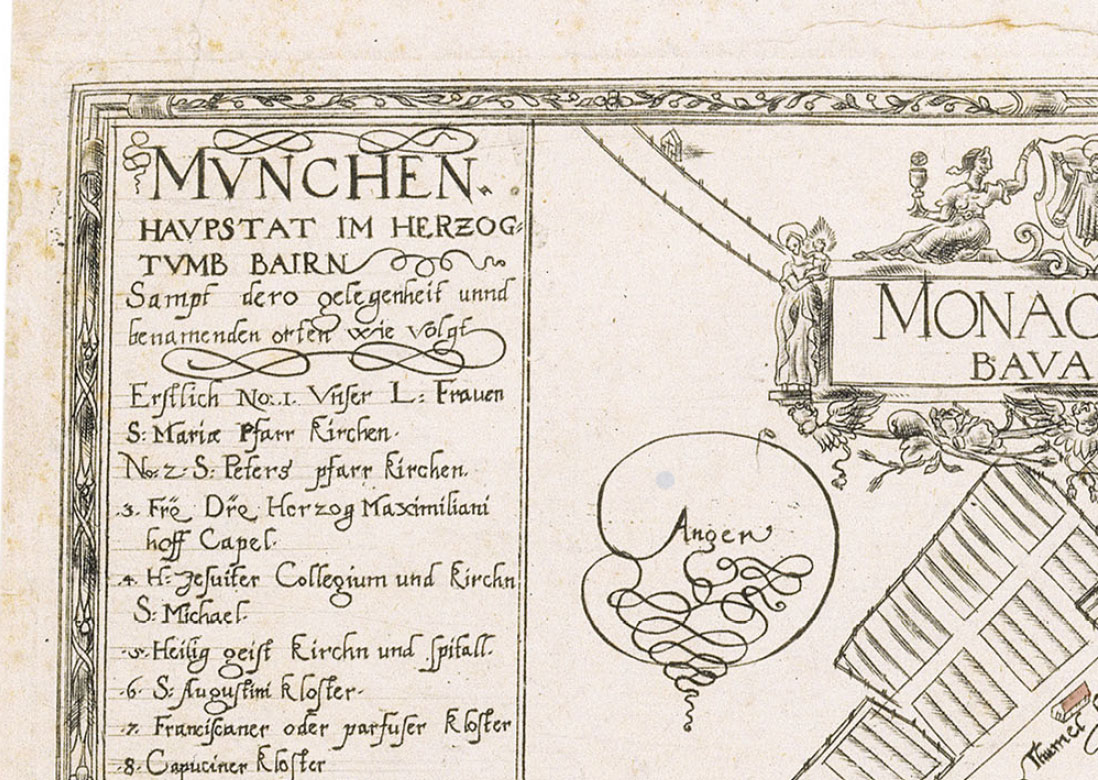 MVNCHEN.
HAVPSTAT IM HERZOG:
TVMB BAIRN
Sampt dero gelegenheit unnd
benamenden orten wie volgt
Erstlich No: 1. Vnser L: Frauen
S: Mariæ Pfarr Kirchen.
No: 2: S: Peters pfarr Kirchen.
.3. Frë Drë Herzog Maximiliani
hoff Capel.
.4. H: Jesuiter Collegium und Kirchn
S: Michael.
.5. Heilig geist Kirchn und spitall.
.6. S: Augustini Kloster.
.7. Franciscaner oder parfuser Kloster
.8. Capuciner Kloster
MONAC
BAVA
Anger
Thurnel